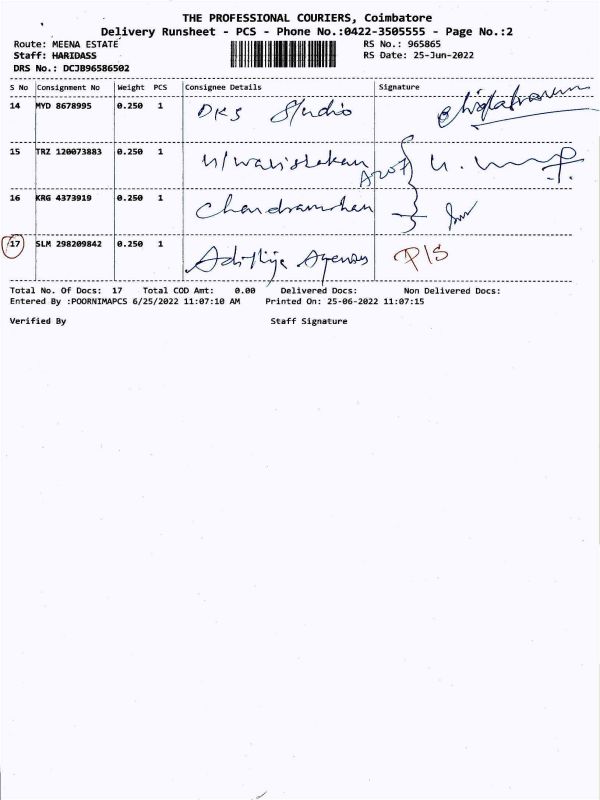 THE PROFESSIONAL COURIERS, Coimbatore
Delivery Runsheet - PCS - Phone No.:0422-3505555 - Page No.:2
Route: MEENA ESTATE RS No.: 965865
Staff: HARIDASS RS Date: 25-Jun-2022
DRS No.: DCJB96586502
S No Consignment No Weight PCS Consignee Details Signature
14 MYD 8678995 0.250 1 DKS Studio
15 TRZ 120073883 0.250 1
16 KRG 4373919 0.250 1
17 SLM 298209842 0.250 1 P/S
Total No. Of Docs: 17 Total COD Amt: 0.00 Delivered Docs: Non Delivered Docs:
Entered By :POORNIMAPCS 6/25/2022 11:07:10 AM Printed On: 25-06-2022 11:07:15
Verified By Staff Signature